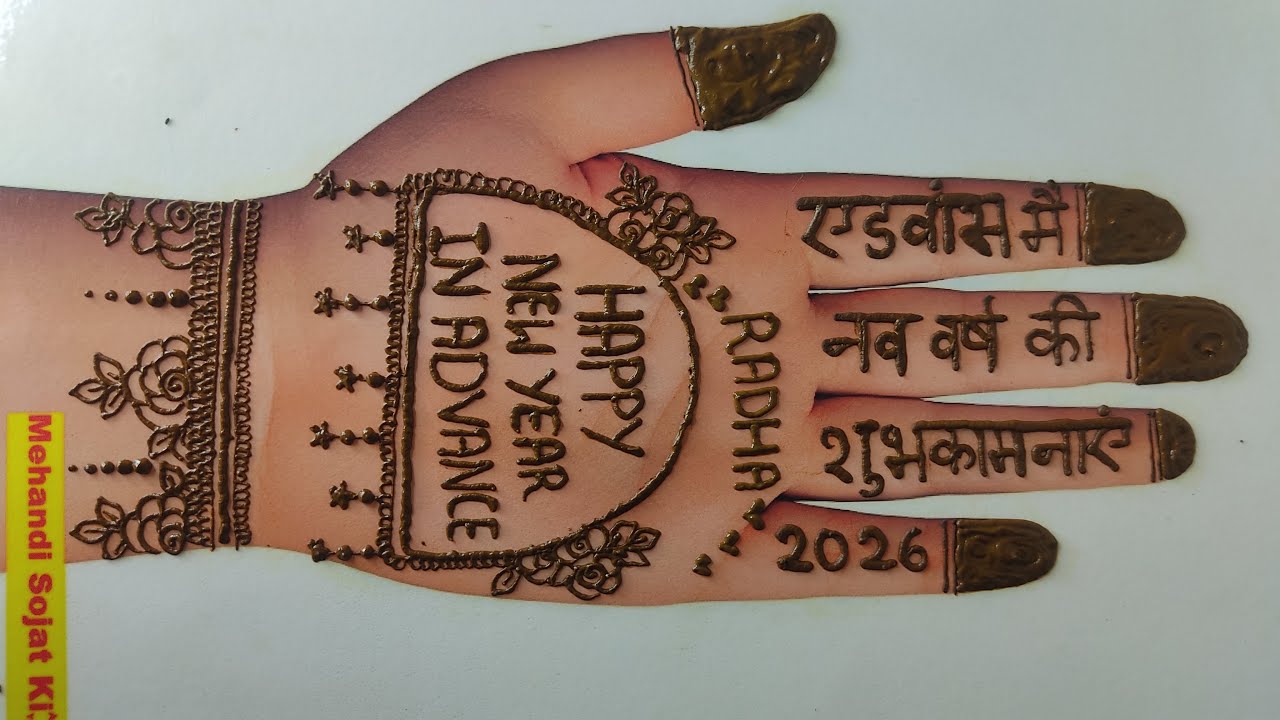 HAPPY
NEW YEAR
IN ADVANCE
"RADHA"
एडवांस मे
नव वर्ष की
शुभकामनाएं
2026
Mehandi Sojat Ki